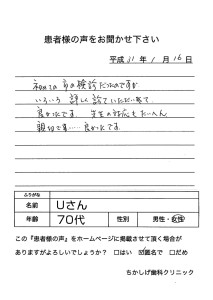 患者様の声をお聞かせ下さい
平成 31 年 1 月 16 日
市の検診だったのですが
いろいろ 詳しく 診ていただい
良かったです。 先生の対応もたいへん
親切で 良かったです。
ふりがな
名前 Uさん
年齢 70代 性別 男性・女性
この『患者様の声』をホームページに掲載させて頂く場合が
ありますがよろしいでしょうか? □はい ☑匿名で □だめ
ちかしげ歯科クリニック